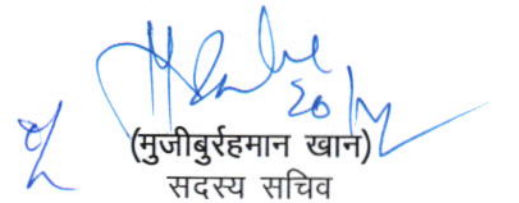 20/12
(मुजीबुर्रहमान खान)
सदस्य सचिव